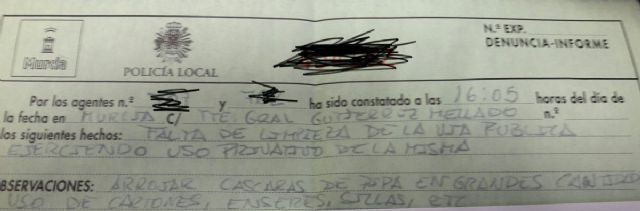 N.º EXP.
DENUNCIA-INFORME
Murcia
POLICÍA LOCAL
Por los agentes n.º y ha sido constatado a las 16:05 horas del día de
la fecha en MURCIA C/ TTE. GRAL GUTIERREZ MELLADO n.º
los siguientes hechos: FALTA DE LIMPIEZA DE LA VIA PUBLICA
EJERCIENDO USO PRIVATIVO DE LA MISMA
BSERVACIONES: ARROJAR CASCARAS DE PIPA EN GRANDES CANTIDAD
USO DE CARTONES, ENSERES, SILLAS, ETC